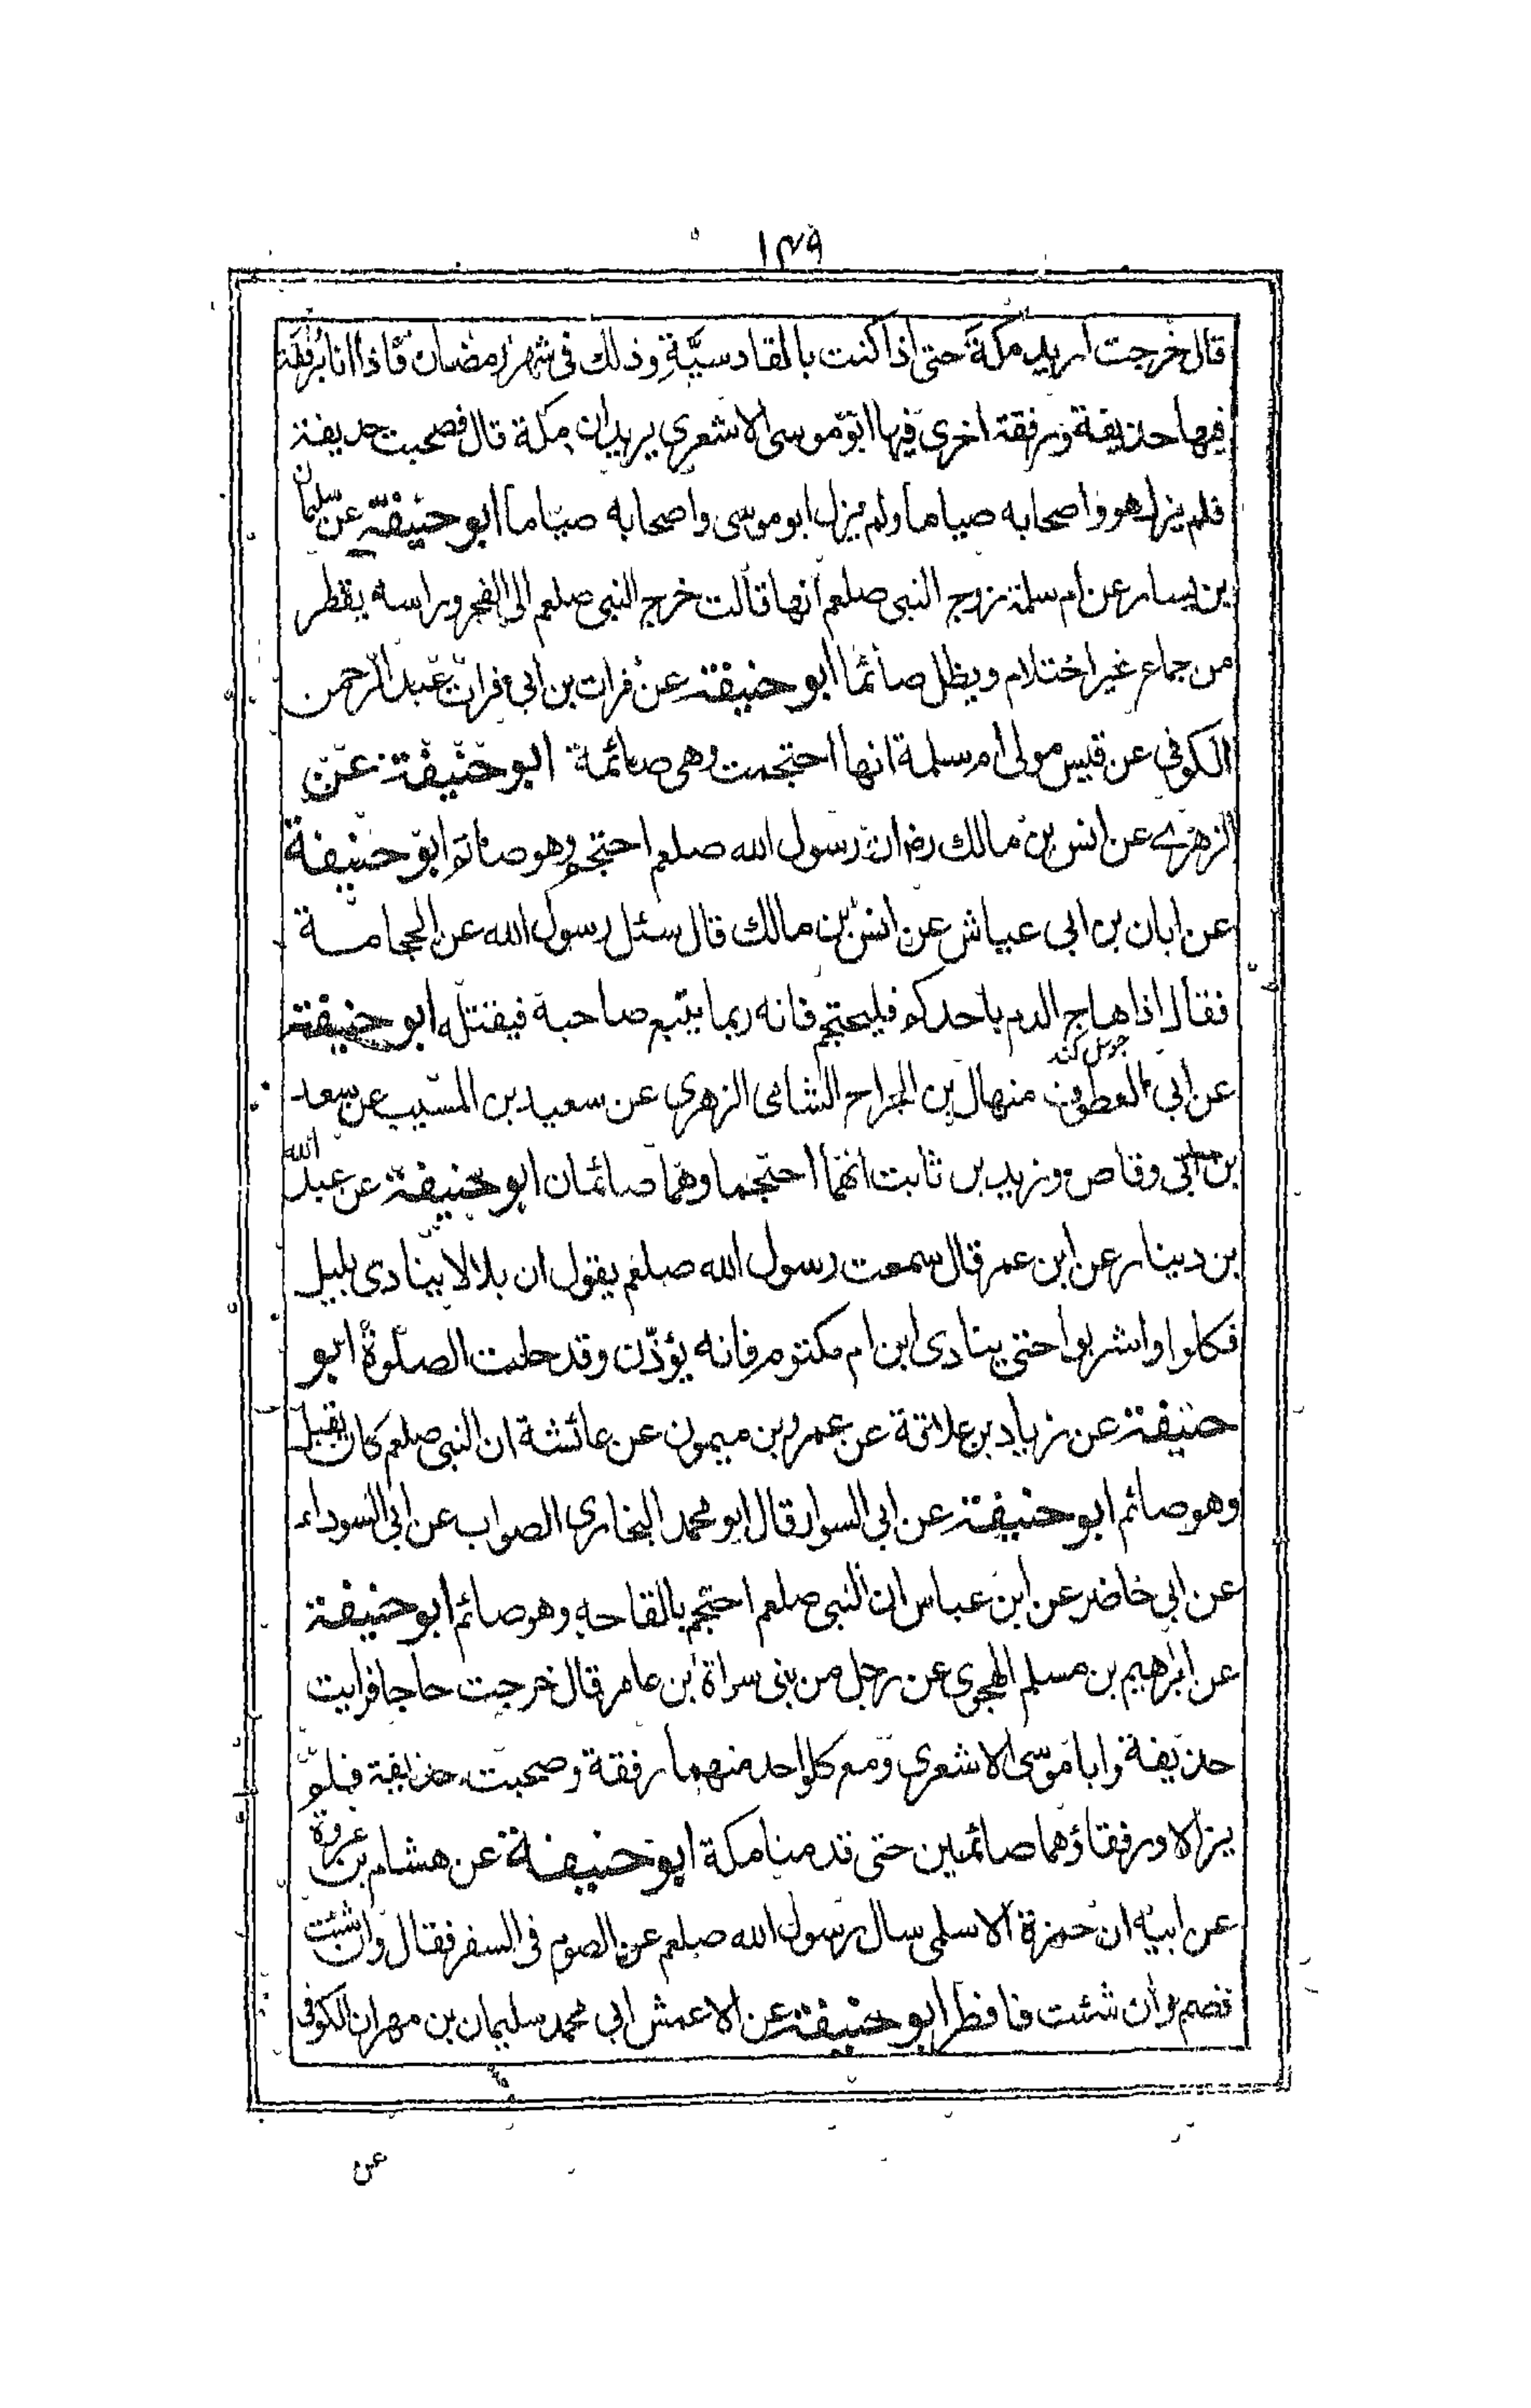 ١٣٩
قال خرجت اريد مكة حتى اذا كنت بالقادسية وذلك فى شهر رمضان فاذا انا برفقة
فيها حذيفة ورفقة اخرى فيها ابو موسى الاشعري يريدان مكة قال فصحبت حذيفة
فلم يزل هو واصحابه صياما ولم يزل ابو موسى واصحابه صياما ابو حنيفة عن سليمان
بن يسار عن ام سلمة زوج النبى صلعم انها قالت خرج النبى صلعم الى الفجر وراسه يقطر
من جماع غير احتلام ويظل صائما ابو حنيفة عن فرات بن ابى فرات عبد الرحمن
الكوفي عن قيس مولى ام سلمة انها احتجمت وهى صائمة ابو حنيفة عن
الزهرے عن انس بن مالك رض ان رسول الله صلعم احتجم وهو صائم ابو حنيفة
عن ابان بن ابى عياش عن انس بن مالك قال سئل رسول الله عن الحجامة
فقال اذا هاج الدم باحدكم فليحتجم فانه ربما يتبع صاحبة فيقتله ابو حنيفة
جوش كند
عن ابي العطوف منهال بن الجراح الشامى الزهري عن سعيد بن المسيب عن سعد
بن ابى وقاص وزيد بن ثابت انهما احتجما وهما صائمان ابو حنيفة عن عبد الله
بن دينار عن ابن عمر قال سمعت رسول الله صلعم يقول ان بلالا ينادى بليل
فكلوا واشربوا حتى ينادى ابن ام مكتوم فانه يؤذن وقد حلت الصلوة ابو
حنيفة عن زياد بن علاقة عن عمرو بن ميمون عن عائشة ان النبى صلعم كان يقبل
وهو صائم ابو حنيفة عن ابى السوار قال ابو محمد البخاري الصواب عن ابى السوداء
عن ابي خاضر عن ابن عباس ان النبى صلعم احتجم بالقاحه وهو صائم ابو حنيفة
عن ابراهيم بن مسلم الهجري عن رجل من بنى سراة ابن عامر قال خرجت حاجا فرايت
حذيفة وابا موسى الاشعري ومع كل واحد منهما رفقة وصحبت حذيفة فلم
يزالا ورفقاؤهما صائمين حتى قدمنا مكة ابو حنيفة عن هشام بن عروة
عن ابيه ان حمزة الاسلمى سال رسول الله صلعم عن الصوم فى السفر فقال وان شئت
فصم وان شئت فافطر ابو حنيفة عن الاعمش ابي محمد سليمان بن مهران الكوفى
عن